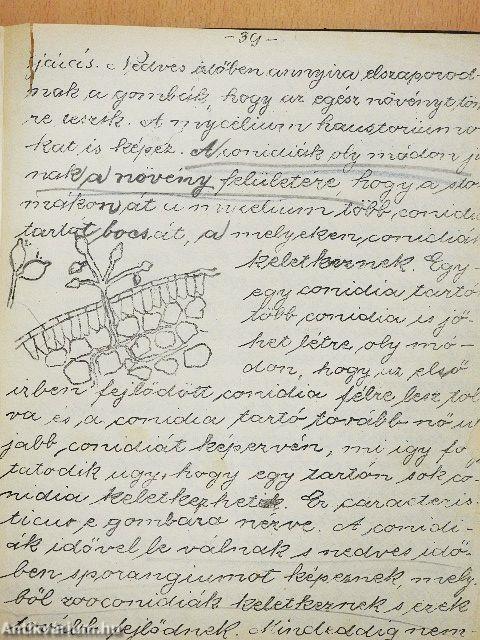 - 39 -
jáás. Nedves időben annyira elszaporod-
nak a gombák, hogy az egész növényt tön
re teszik. A mycélium haustoriumo
kat is képez. A conidiák oly módon ju
nak a növény felületére, hogy a sto
mákon át a mycelium több conidia
tartót bocsát, a melyeken conidiák
keletkeznek. Egy-
egy conidia tartó
több conidia is jö-
het létre, oly mó-
don, hogy az első
ízben fejlődött conidia félre lesz tol
va és a conidia tartó tovább nő uj
jabb conidiát képezvén, mi igy fo
tatódik ugy, hogy egy tartón sok co-
nidia keletkezhetik. Ez caracteris-
ticus e gombára nézve. A conidi-
ák idővel le válnak s nedves idő-
ben sporangiumot képeznek, mely-
ből zooconidiák keletkeznek s ezek
fejlődnek. Mindeddig nem
Antikvarium.hu